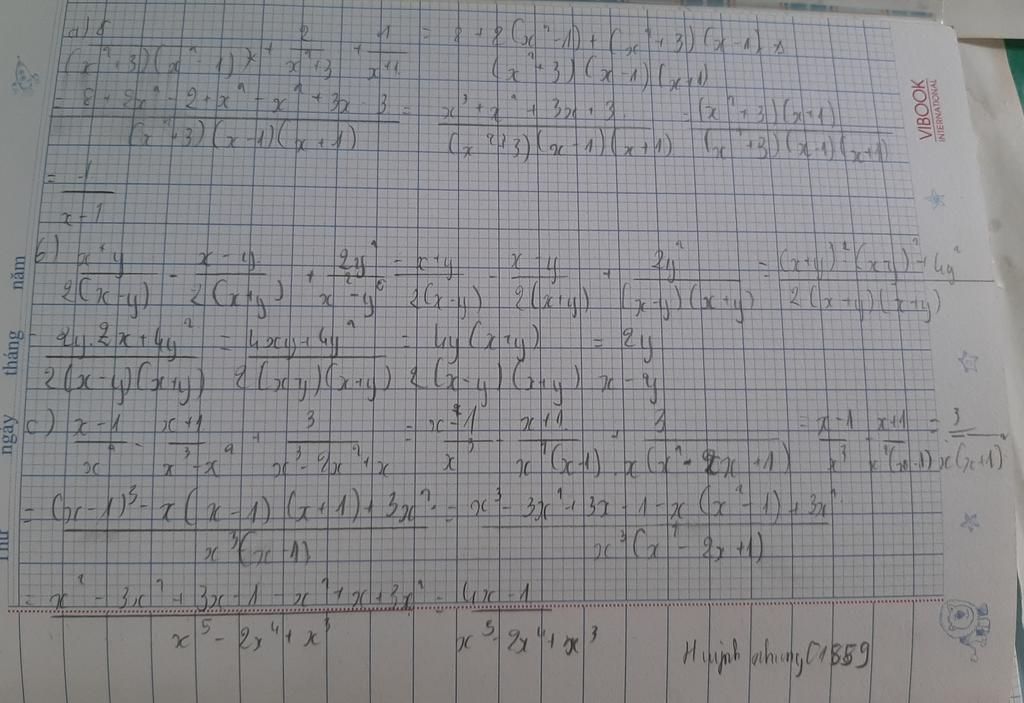 a) 8/((x²+3)(x²-1)) + 2/(x²+3) + 1/(x+1) = (8+2(x²-1)+(x²+3)(x-1))/((x²+3)(x-1)(x+1))
= (8+2x²-2+x³-x²+3x-3)/((x²+3)(x-1)(x+1)) = (x³+x²+3x+3)/((x²+3)(x-1)(x+1)) = ((x²+3)(x+1))/((x²+3)(x-1)(x+1))
= 1/(x-1)
b) (x+y)/(2(x-y)) - (x-y)/(2(x+y)) + 2y²/(x²-y²) = (x+y)/(2(x-y)) - (x-y)/(2(x+y)) + 2y²/((x-y)(x+y)) = ((x+y)²-(x-y)²+4y²)/(2(x+y)(x+y))
= (2y.2x+4y²)/(2(x-y)(x+y)) = (4xy+4y²)/(2(x-y)(x+y)) = 4y(x+y)/(2(x-y)(x+y)) = 2y/(x-y)
c) (x-1)/x³ - (x+1)/(x³-x²) + 3/(x³-2x²+x) = (x-1)/x³ - (x+1)/(x²(x-1)) + 3/(x(x²-2x+1)) = (x-1)/x³ (x+1)/(x²(x-1)) = 3/(x(x+1)²)
= ((x-1)³-x(x-1)(x+1)+3x²)/(x³(x-1)) = (x³-3x²+3x-1-x(x²-1)+3x²)/(x³(x²-2x+1))
= (x²-3x²+3x-1-x²+x+3x²)/(x⁵-2x⁴+x³) = (4x-1)/(x⁵-2x⁴+x³)
Huỳnh nhung C1859
VIBOOK
INTERNATIONAL
Thứ ngày tháng năm